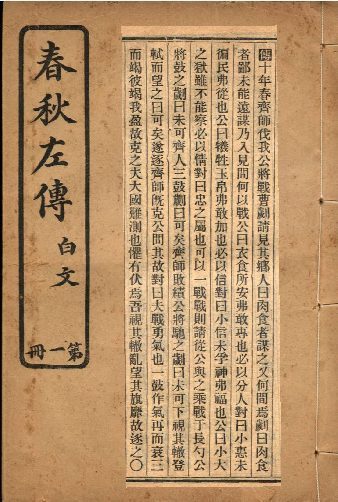 傳十年春齊師伐我公將戰曹劌請見其鄉人曰肉食者謀之又何間焉劌曰肉食
者鄙未能遠謀乃入見問何以戰公曰衣食所安弗敢專也必以分人對曰小惠未
徧民弗從也公曰犧牲玉帛弗敢加也必以信對曰小信未孚神弗福也公曰小大
之獄雖不能察必以情對曰忠之屬也可以一戰戰則請從公與之乘戰于長勺公
將鼓之劌曰未可齊人三鼓劌曰可矣齊師敗績公將馳之劌曰未可下視其轍登
軾而望之曰可矣遂逐齊師既克公問其故對曰夫戰勇氣也一鼓作氣再而衰三
而竭彼竭我盈故克之夫大國難測也懼有伏焉吾視其轍亂望其旗靡故逐之〇
春秋左傳
白文
第一冊